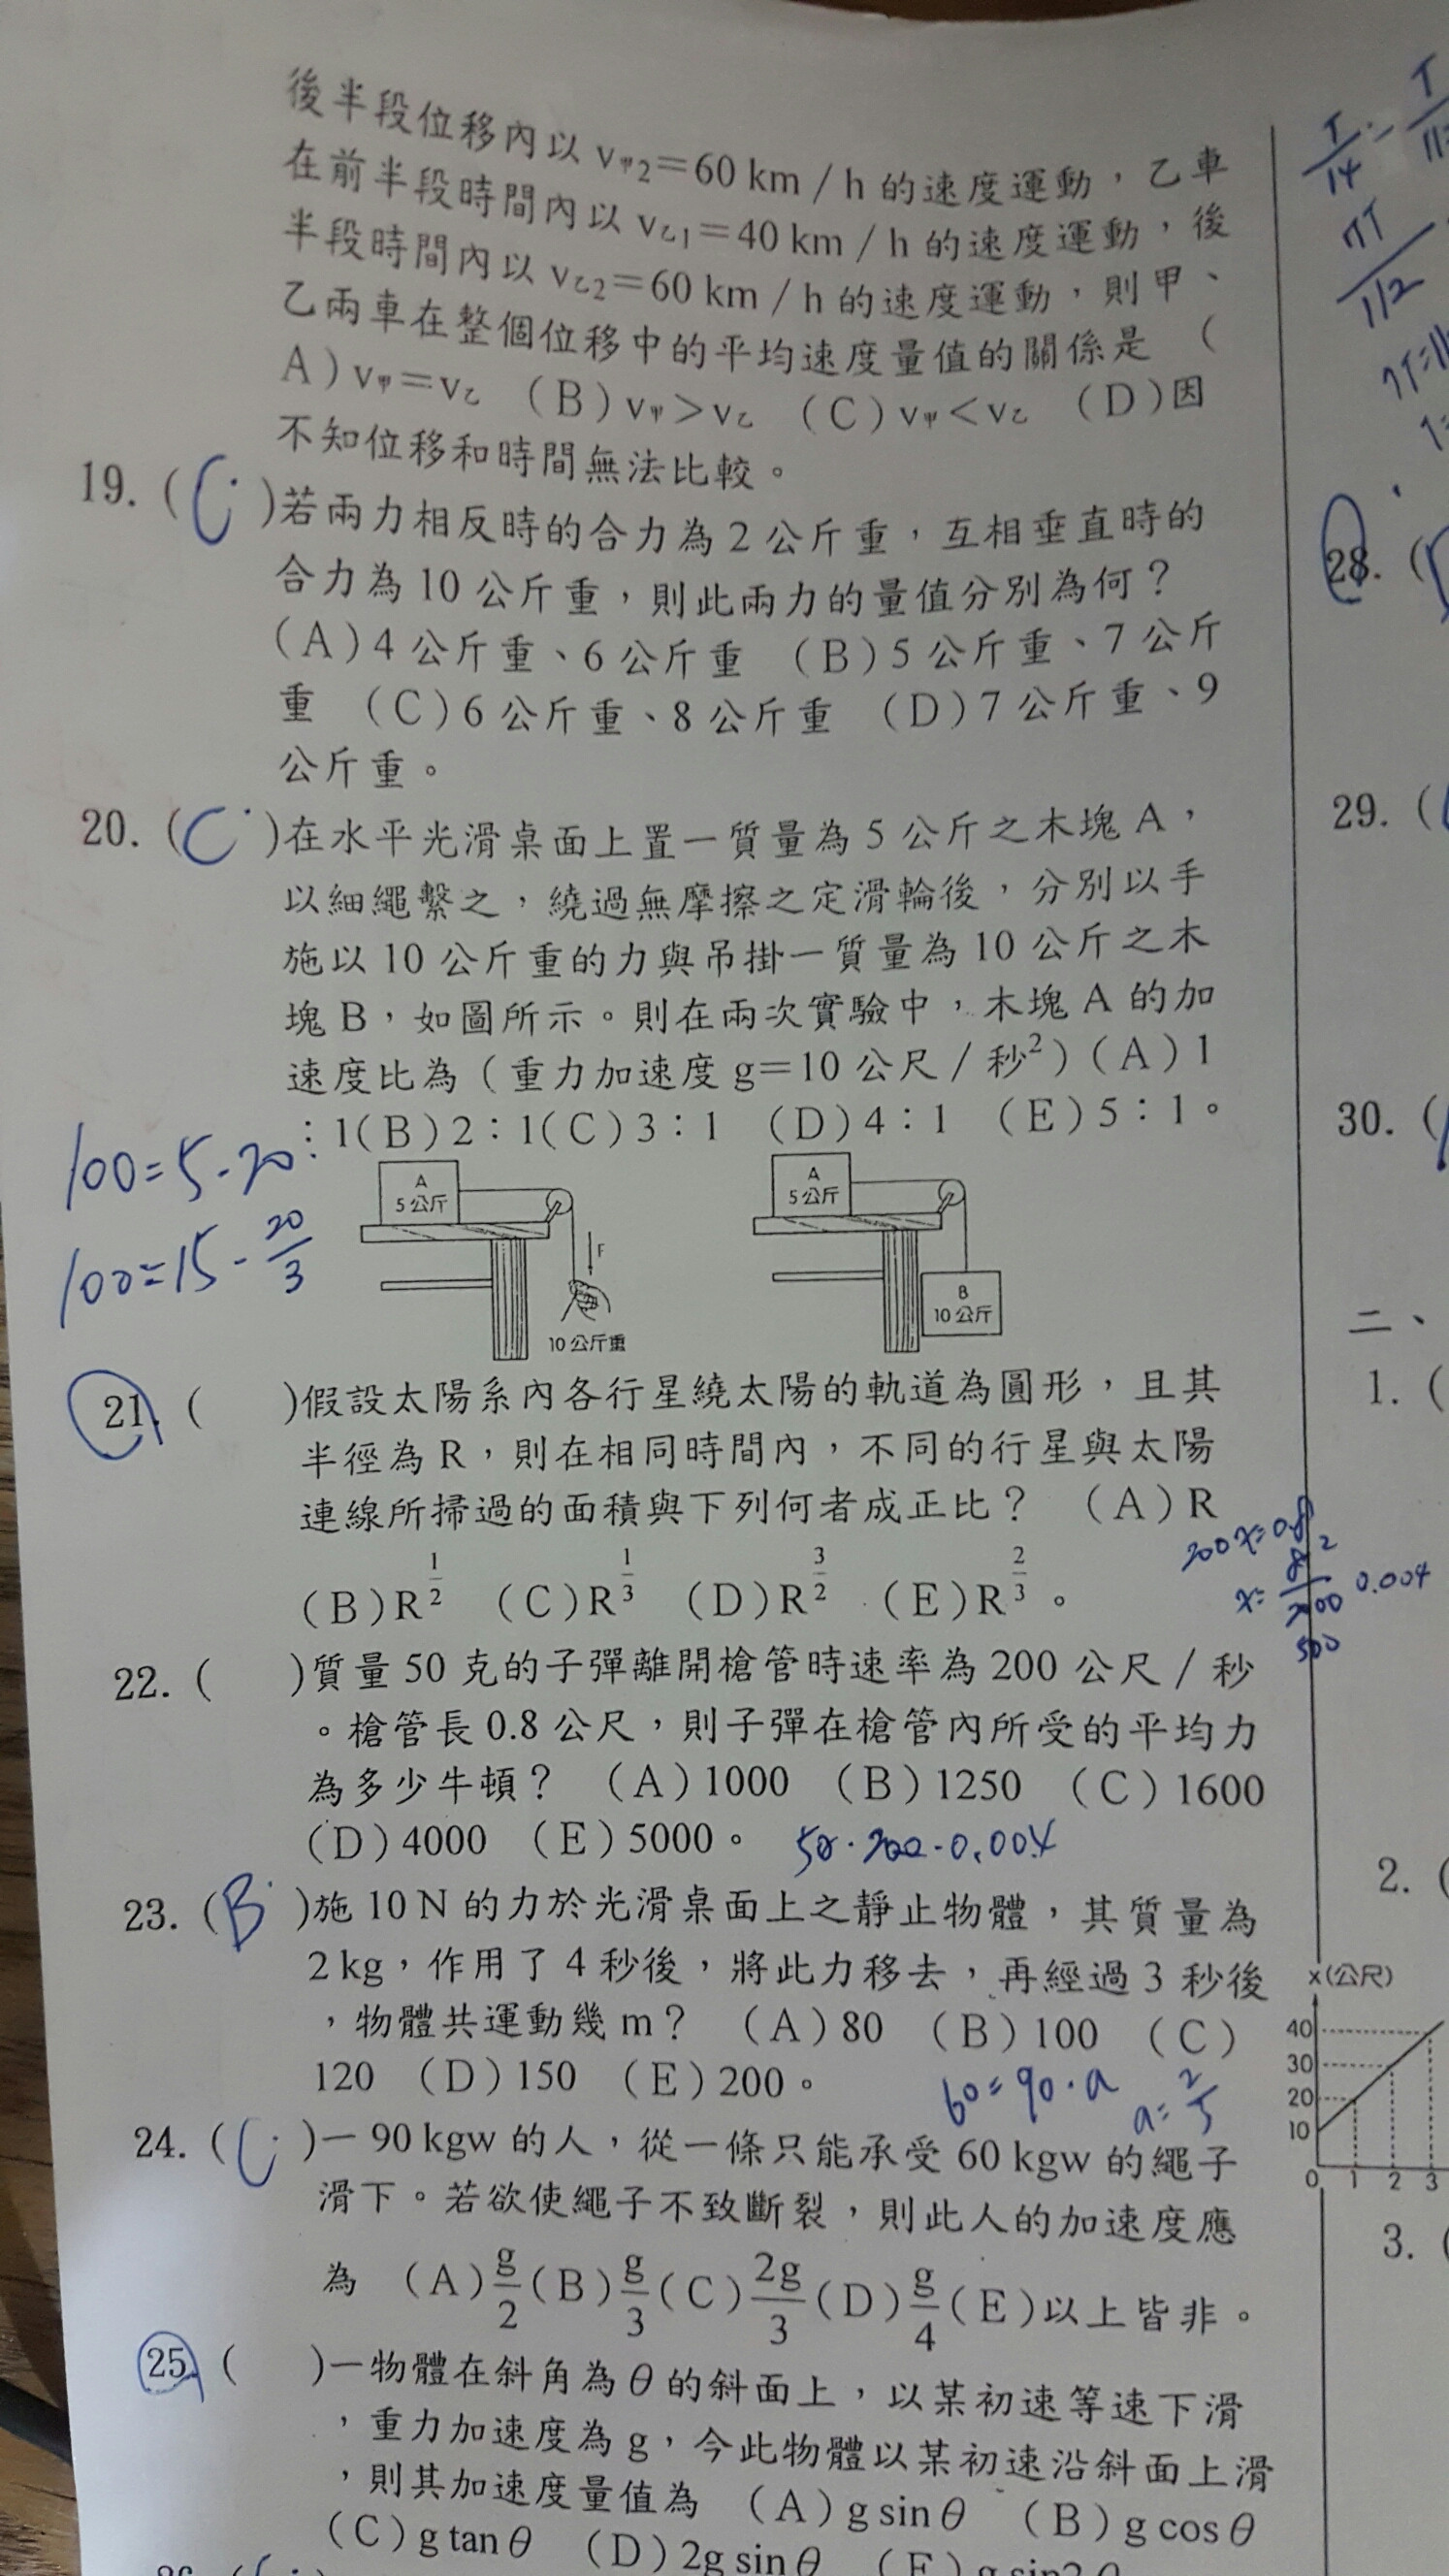 後半段位移內以 v甲2=60 km / h 的速度運動，乙車
在前半段時間內以 v乙1=40 km / h 的速度運動，後
半段時間內以 v乙2=60 km / h 的速度運動，則甲、
乙兩車在整個位移中的平均速度量值的關係是 (
A) v甲=v乙 (B) v甲>v乙 (C) v甲<v乙 (D)因
不知位移和時間無法比較。
19. (C)若兩力相反時的合力為 2 公斤重，互相垂直時的
合力為 10 公斤重，則此兩力的量值分別為何？
(A) 4 公斤重、6 公斤重 (B) 5 公斤重、7 公斤
重 (C) 6 公斤重、8 公斤重 (D) 7 公斤重、9
公斤重。
20. (C)在水平光滑桌面上置一質量為 5 公斤之木塊 A，
以細繩繫之，繞過無摩擦之定滑輪後，分別以手
施以 10 公斤重的力與吊掛一質量為 10 公斤之木
塊 B，如圖所示。則在兩次實驗中，木塊 A 的加
速度比為 (重力加速度 g=10 公尺 / 秒²) (A) 1
：1(B) 2：1(C) 3：1 (D) 4：1 (E) 5：1。
100=5·20
100=15·20/3
A
5 公斤
F
10 公斤重
A
5 公斤
B
10 公斤
21. ( )假設太陽系內各行星繞太陽的軌道為圓形，且其
半徑為 R，則在相同時間內，不同的行星與太陽
連線所掃過的面積與下列何者成正比？ (A) R
(B) R^1/2 (C) R^1/3 (D) R^3/2 (E) R^2/3。
200x=0.8
0.004
22. ( )質量 50 克的子彈離開槍管時速率為 200 公尺 / 秒
。槍管長 0.8 公尺，則子彈在槍管內所受的平均力
為多少牛頓？ (A) 1000 (B) 1250 (C) 1600
(D) 4000 (E) 5000。 50·200·0.004
23. (B)施 10 N 的力於光滑桌面上之靜止物體，其質量為
2 kg，作用了 4 秒後，將此力移去，再經過 3 秒後
，物體共運動幾 m？ (A) 80 (B) 100 (C)
120 (D) 150 (E) 200。
60=90·a a=2/3
24. (C)一 90 kgw 的人，從一條只能承受 60 kgw 的繩子
滑下。若欲使繩子不致斷裂，則此人的加速度應
為 (A) g/2 (B) g/3 (C) 2g/3 (D) g/4 (E)以上皆非。
25. ( )一物體在斜角為 θ 的斜面上，以某初速等速下滑
，重力加速度為 g，今此物體以某初速沿斜面上滑
，則其加速度量值為 (A) g sin θ (B) g cos θ
(C) g tan θ (D) 2g sin θ (E) g sin2 θ
T/14
28. (
29. (
30. (
二、
1. (
2. (
x(公尺)
40
30
20
10
0 1 2 3
3. (